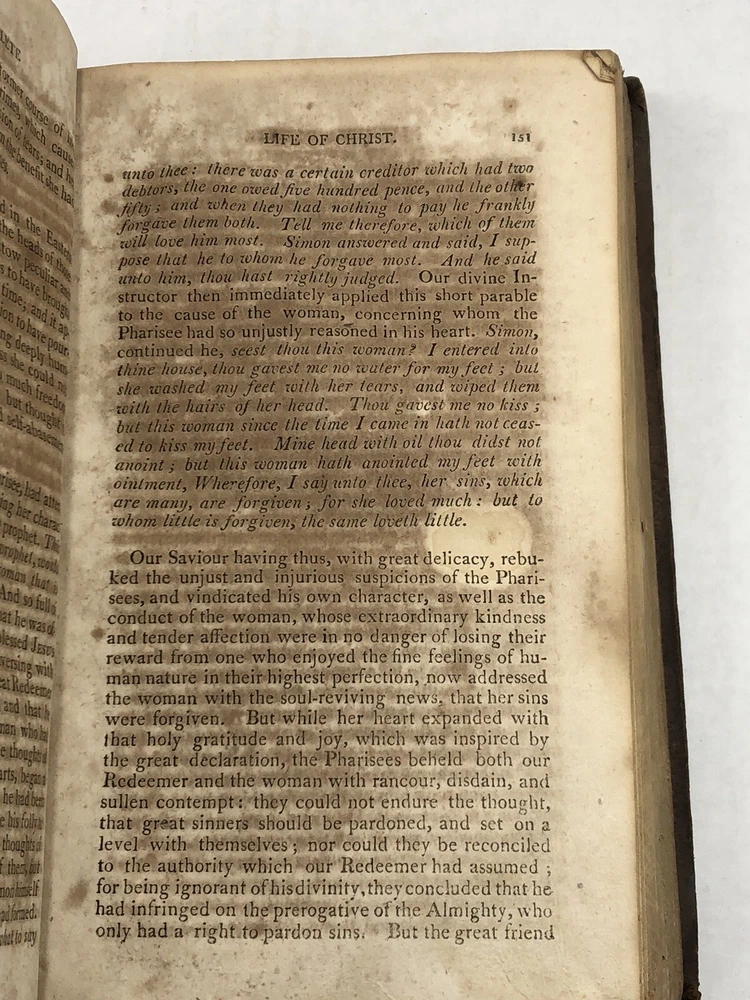 LIFE OF CHRIST. 151
unto thee: there was a certain creditor which had two
debtors, the one owed five hundred pence, and the other
fifty; and when they had nothing to pay he frankly
forgave them both. Tell me therefore, which of them
will love him most. Simon answered and said, I sup-
pose that he to whom he forgave most. And he said
unto him, thou hast rightly judged. Our divine In-
structor then immediately applied this short parable
to the cause of the woman, concerning whom the
Pharisee had so unjustly reasoned in his heart. Simon,
continued he, seest thou this woman? I entered into
thine house, thou gavest me no water for my feet; but
she washed my feet with her tears, and wiped them
with the hairs of her head. Thou gavest me no kiss;
but this woman since the time I came in hath not ceas-
ed to kiss my feet. Mine head with oil thou didst not
anoint; but this woman hath anointed my feet with
ointment, Wherefore, I say unto thee, her sins, which
are many, are forgiven; for she loved much: but to
whom little is forgiven, the same loveth little.
Our Saviour having thus, with great delicacy, rebu-
ked the unjust and injurious suspicions of the Phari-
sees, and vindicated his own character, as well as the
conduct of the woman, whose extraordinary kindness
and tender affection were in no danger of losing their
reward from one who enjoyed the fine feelings of hu-
man nature in their highest perfection, now addressed
the woman with the soul-reviving news, that her sins
were forgiven. But while her heart expanded with
that holy gratitude and joy, which was inspired by
the great declaration, the Pharisees beheld both our
Redeemer and the woman with rancour, disdain, and
sullen contempt: they could not endure the thought,
that great sinners should be pardoned, and set on a
level with themselves; nor could they be reconciled
to the authority which our Redeemer had assumed;
for being ignorant of his divinity, they concluded that he
had infringed on the prerogative of the Almighty, who
only had a right to pardon sins. But the great friend